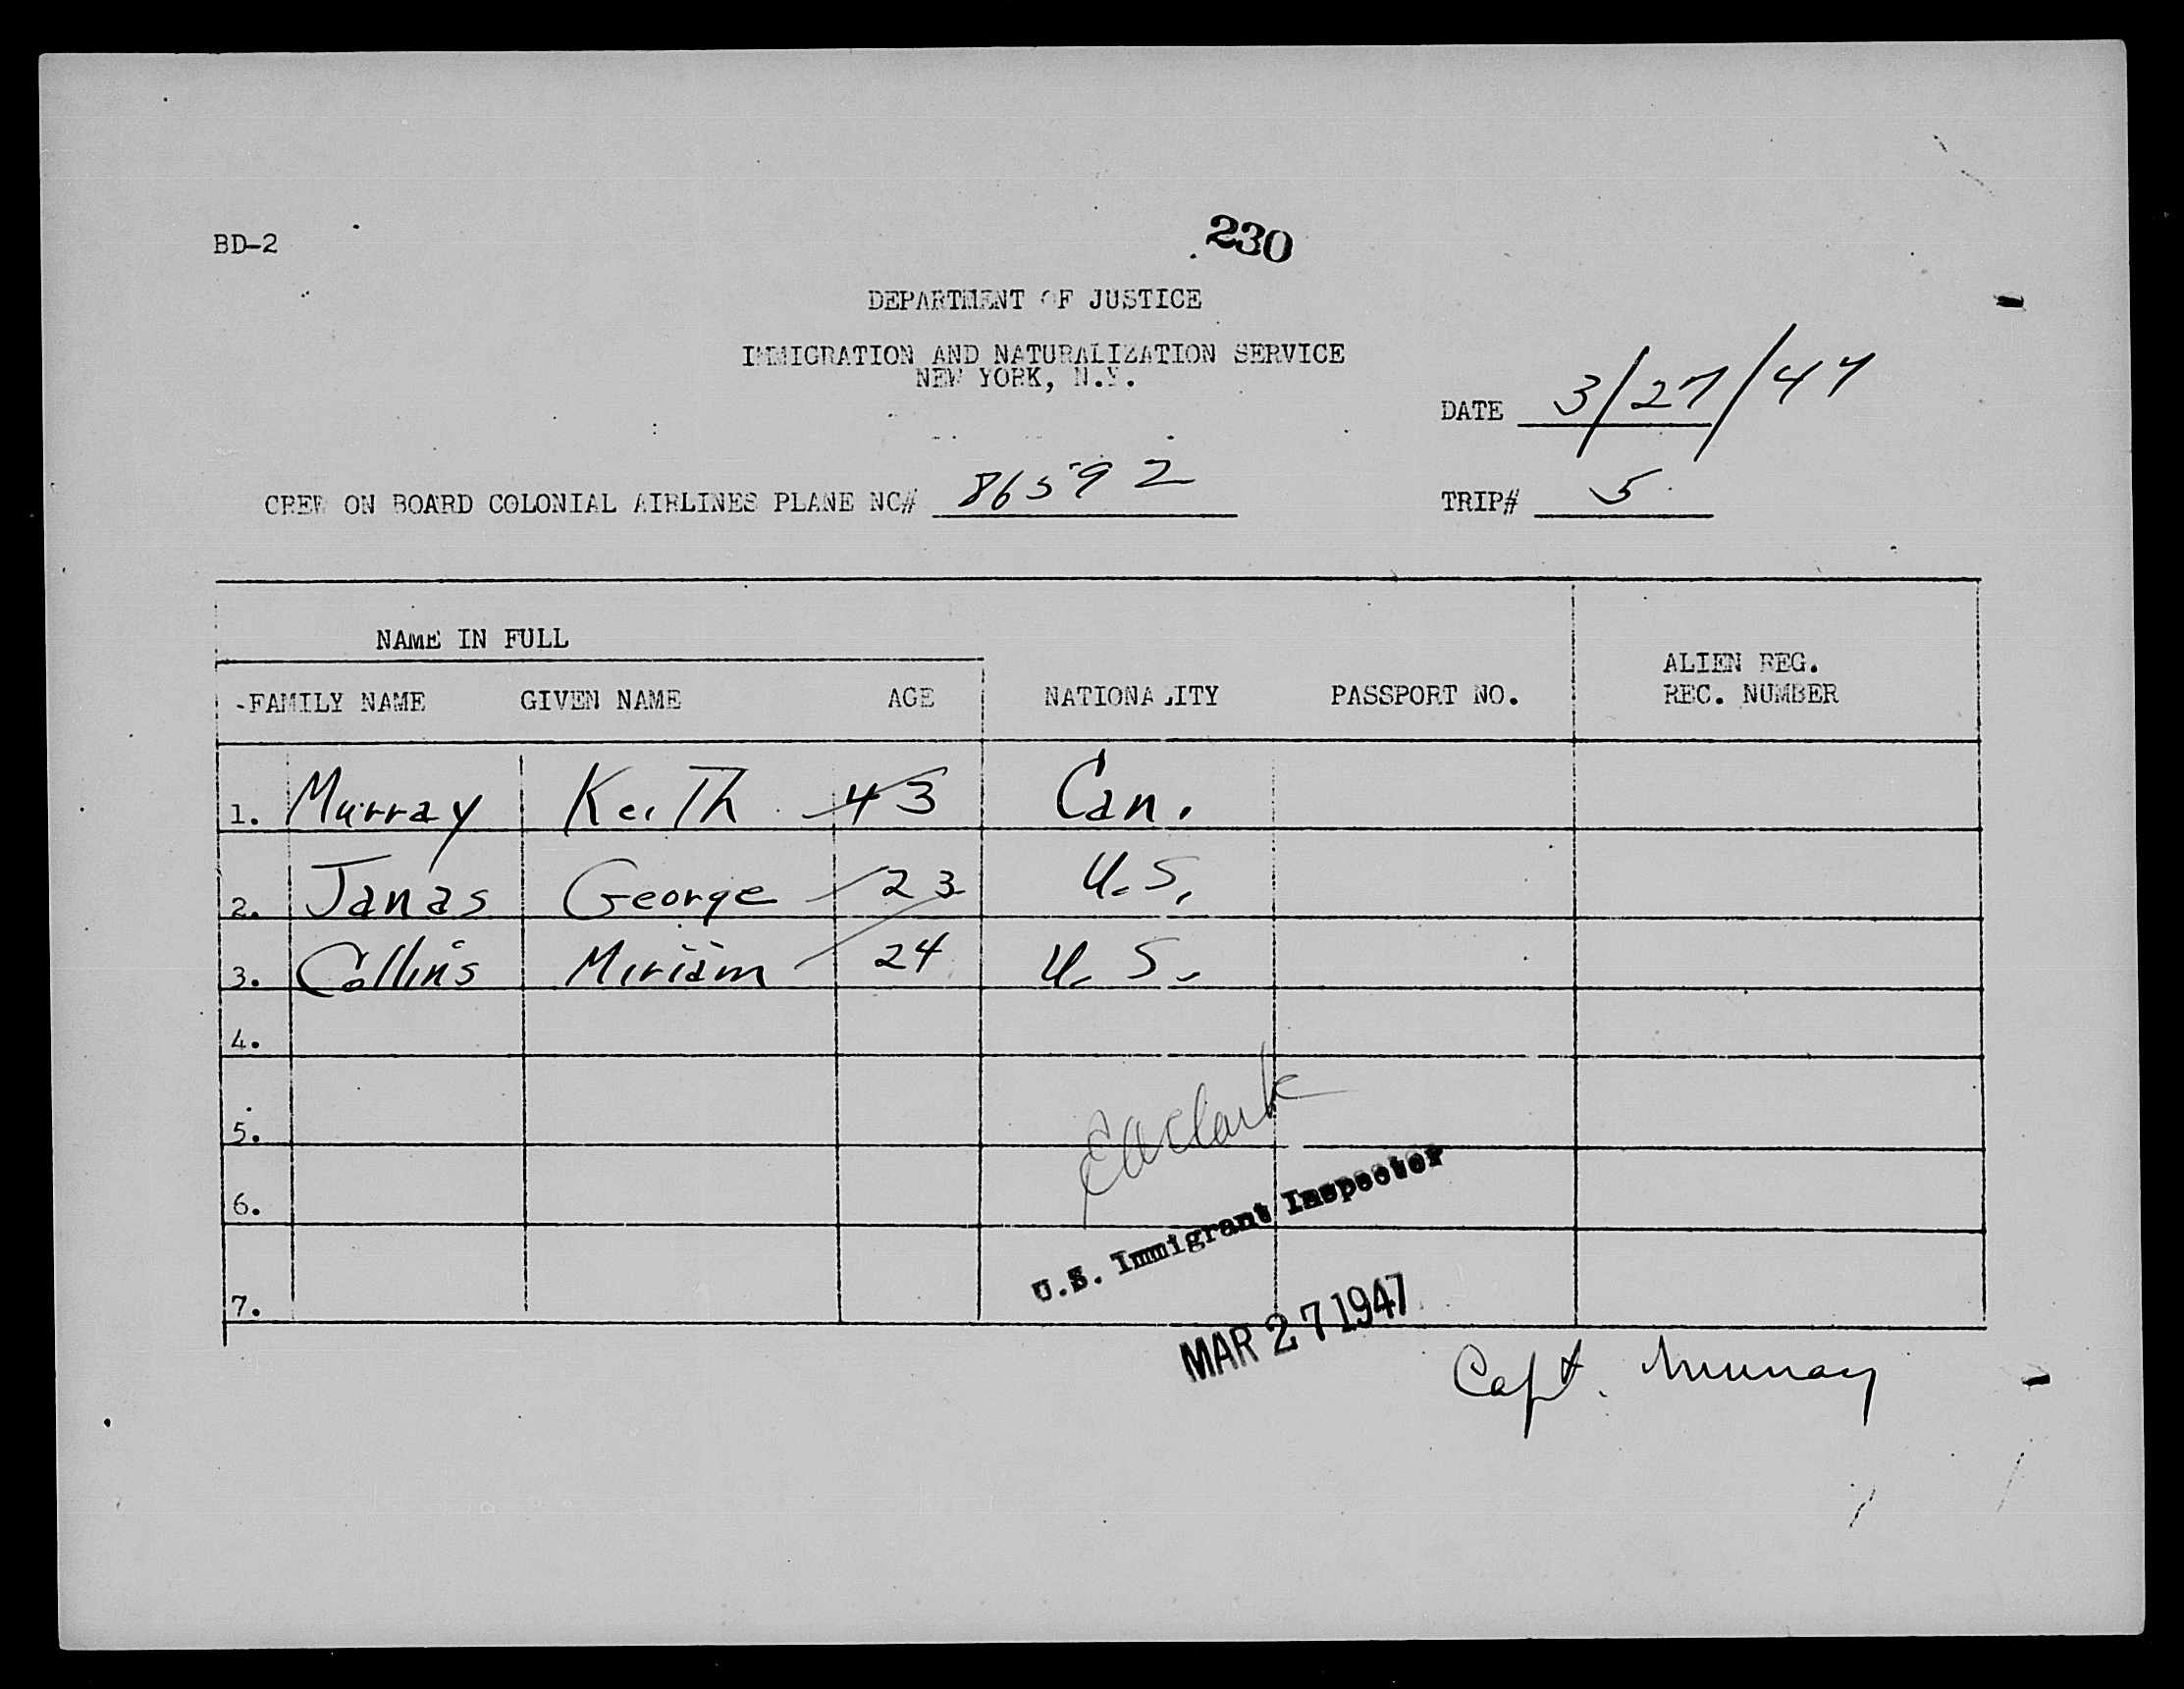 BD-2
230
DEPARTMENT OF JUSTICE
IMMIGRATION AND NATURALIZATION SERVICE
NEW YORK, N.Y.
DATE 3/27/47
CREW ON BOARD COLONIAL AIRLINES PLANE NC# 86592
TRIP# 5
NAME IN FULL
ALIEN REG.
REC. NUMBER
FAMILY NAME GIVEN NAME AGE NATIONALITY PASSPORT NO.
1. Murray Keith 43 Can.
2. Janas George 23 U.S.
3. Collins Miriam 24 U.S.
4.
5.
6.
7.
EAClark
U.S. Immigrant Inspector
MAR 27 1947
Capt. Murray